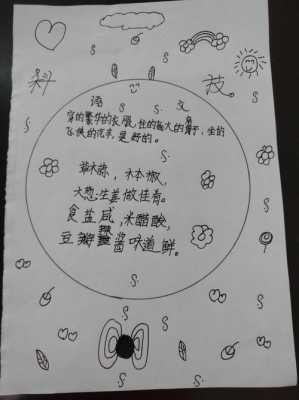 科 技
语 文
穿的繁华的衣服，住的高大的房子，坐的
飞快的汽车，是的。
草木，木本椒，
大葱生姜做佳肴。
食盐咸，米醋酸，
豆瓣辣酱味道鲜。